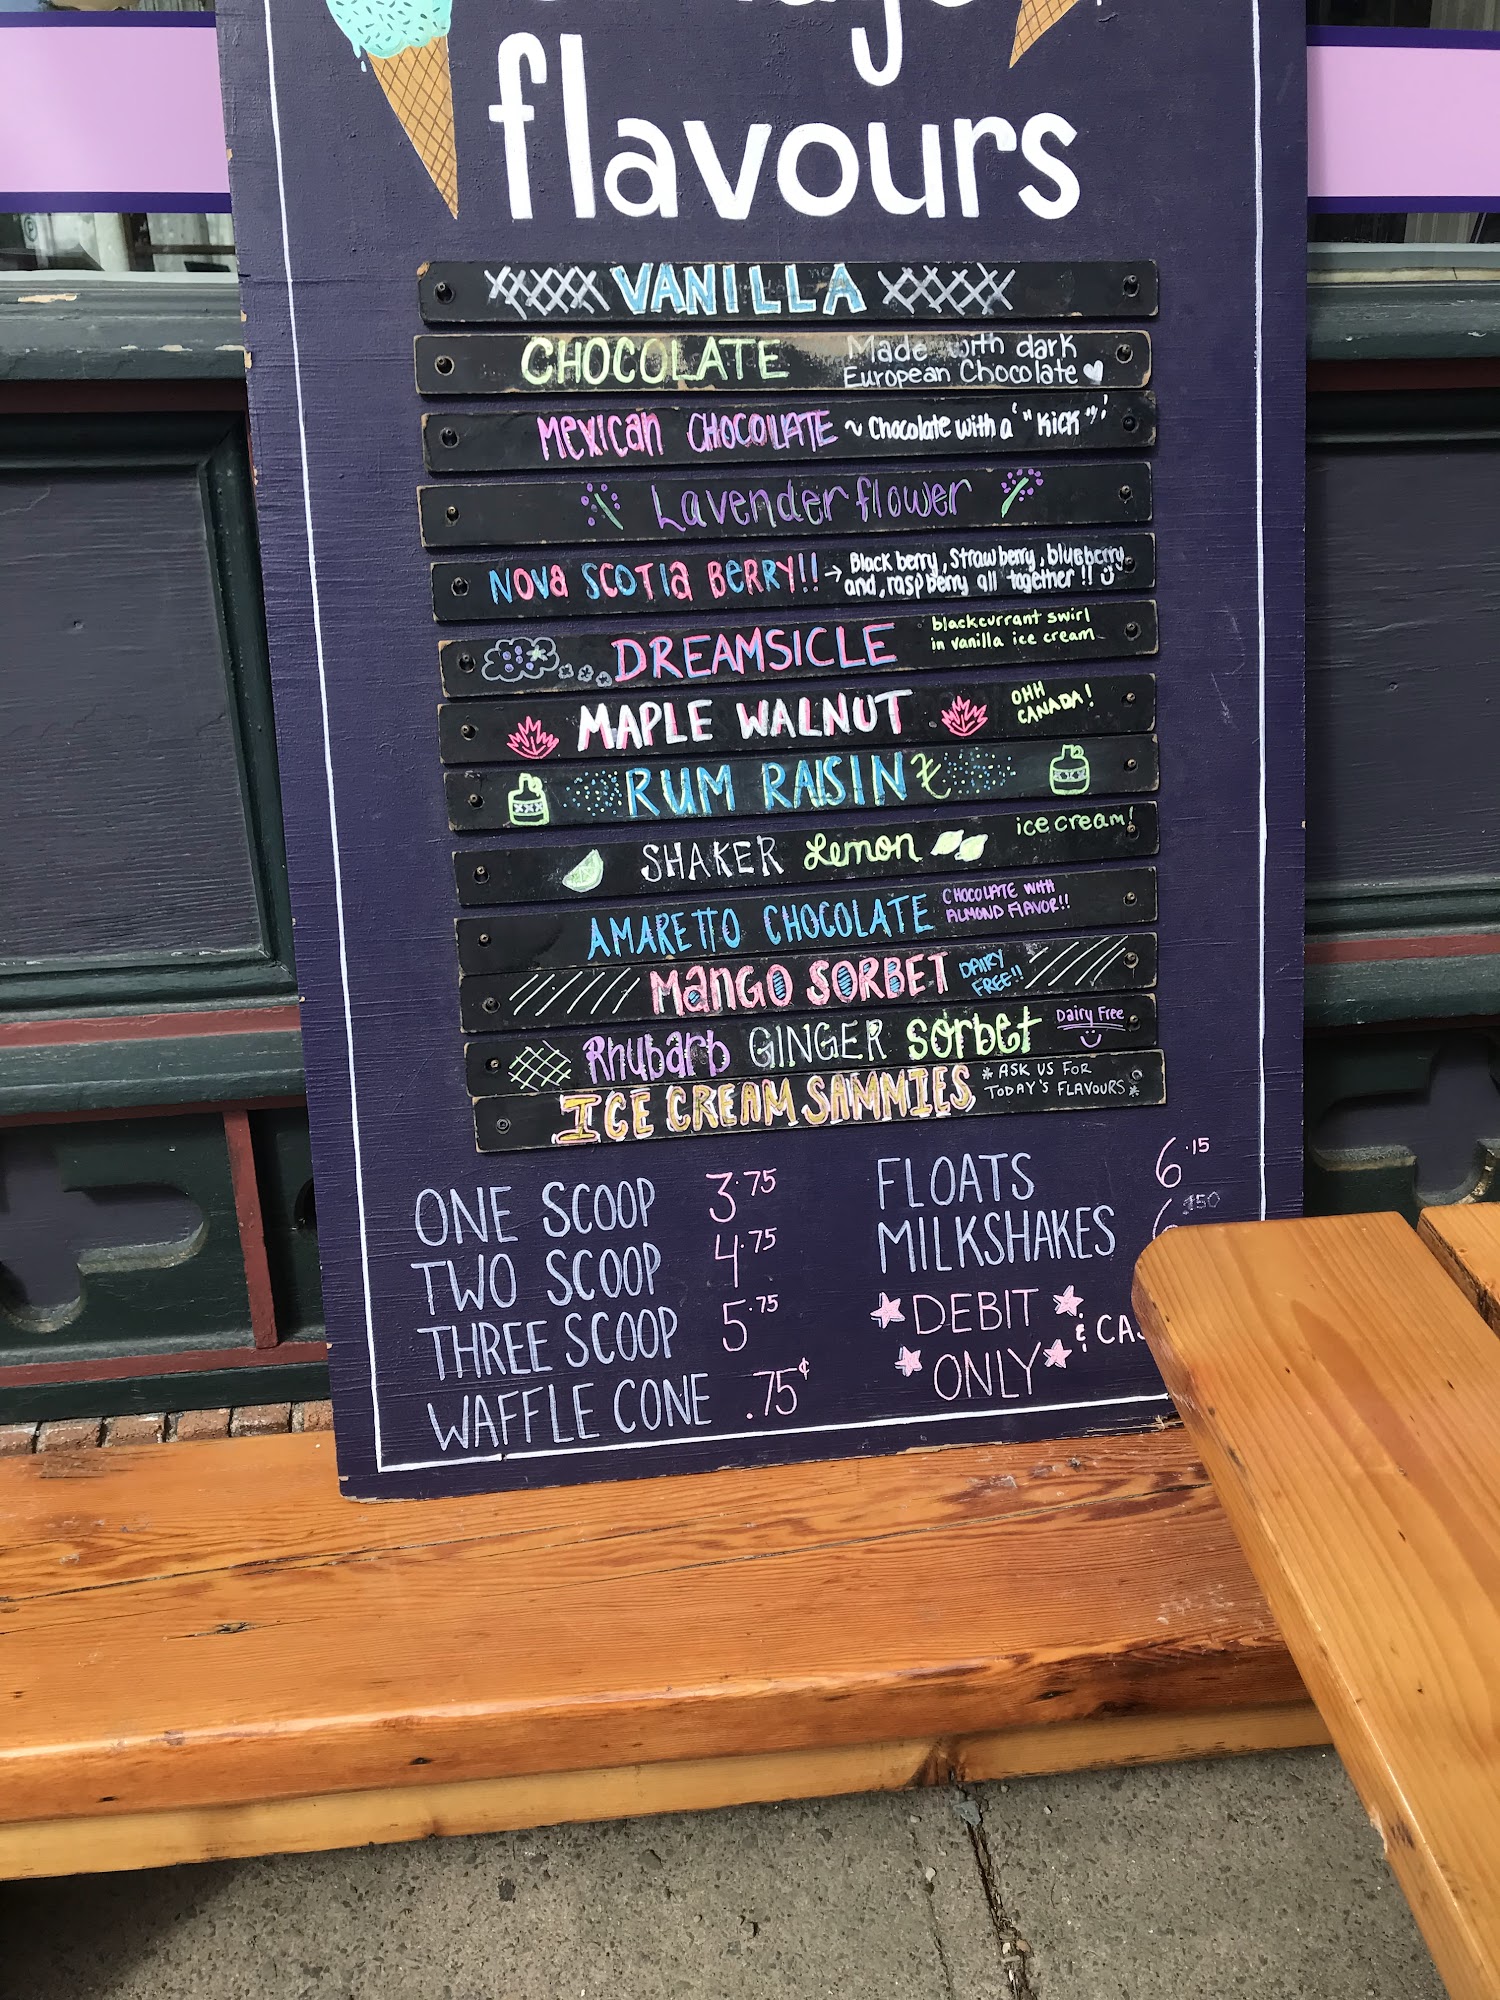 flavours
VANILLA
CHOCOLATE Made with dark
European Chocolate
MEXICAN CHOCOLATE ~ Chocolate with a "KICK"!
Lavender flower
NOVA SCOTIA BERRY!! → Blackberry, Strawberry, blueberry
and, raspberry all together!!
DREAMSICLE blackcurrant swirl
in vanilla ice cream
MAPLE WALNUT OHH
CANADA!
RUM RAISIN
SHAKER Lemon ice cream!
AMARETTO CHOCOLATE CHOCOLATE WITH
ALMOND FLAVOR!!
MANGO SORBET DAIRY
FREE!!
Rhubarb GINGER Sorbet Dairy Free
ICE CREAM SAMMIES *ASK US FOR
TODAY'S FLAVOURS*
ONE SCOOP 3.75
TWO SCOOP 4.75
THREE SCOOP 5.75
WAFFLE CONE .75¢
FLOATS 6.15
MILKSHAKES
DEBIT
ONLY &